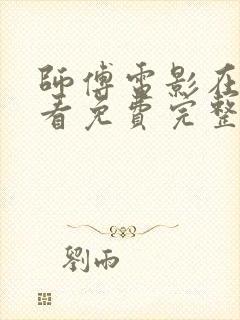 師傅電影在
看免費完整
劉雨